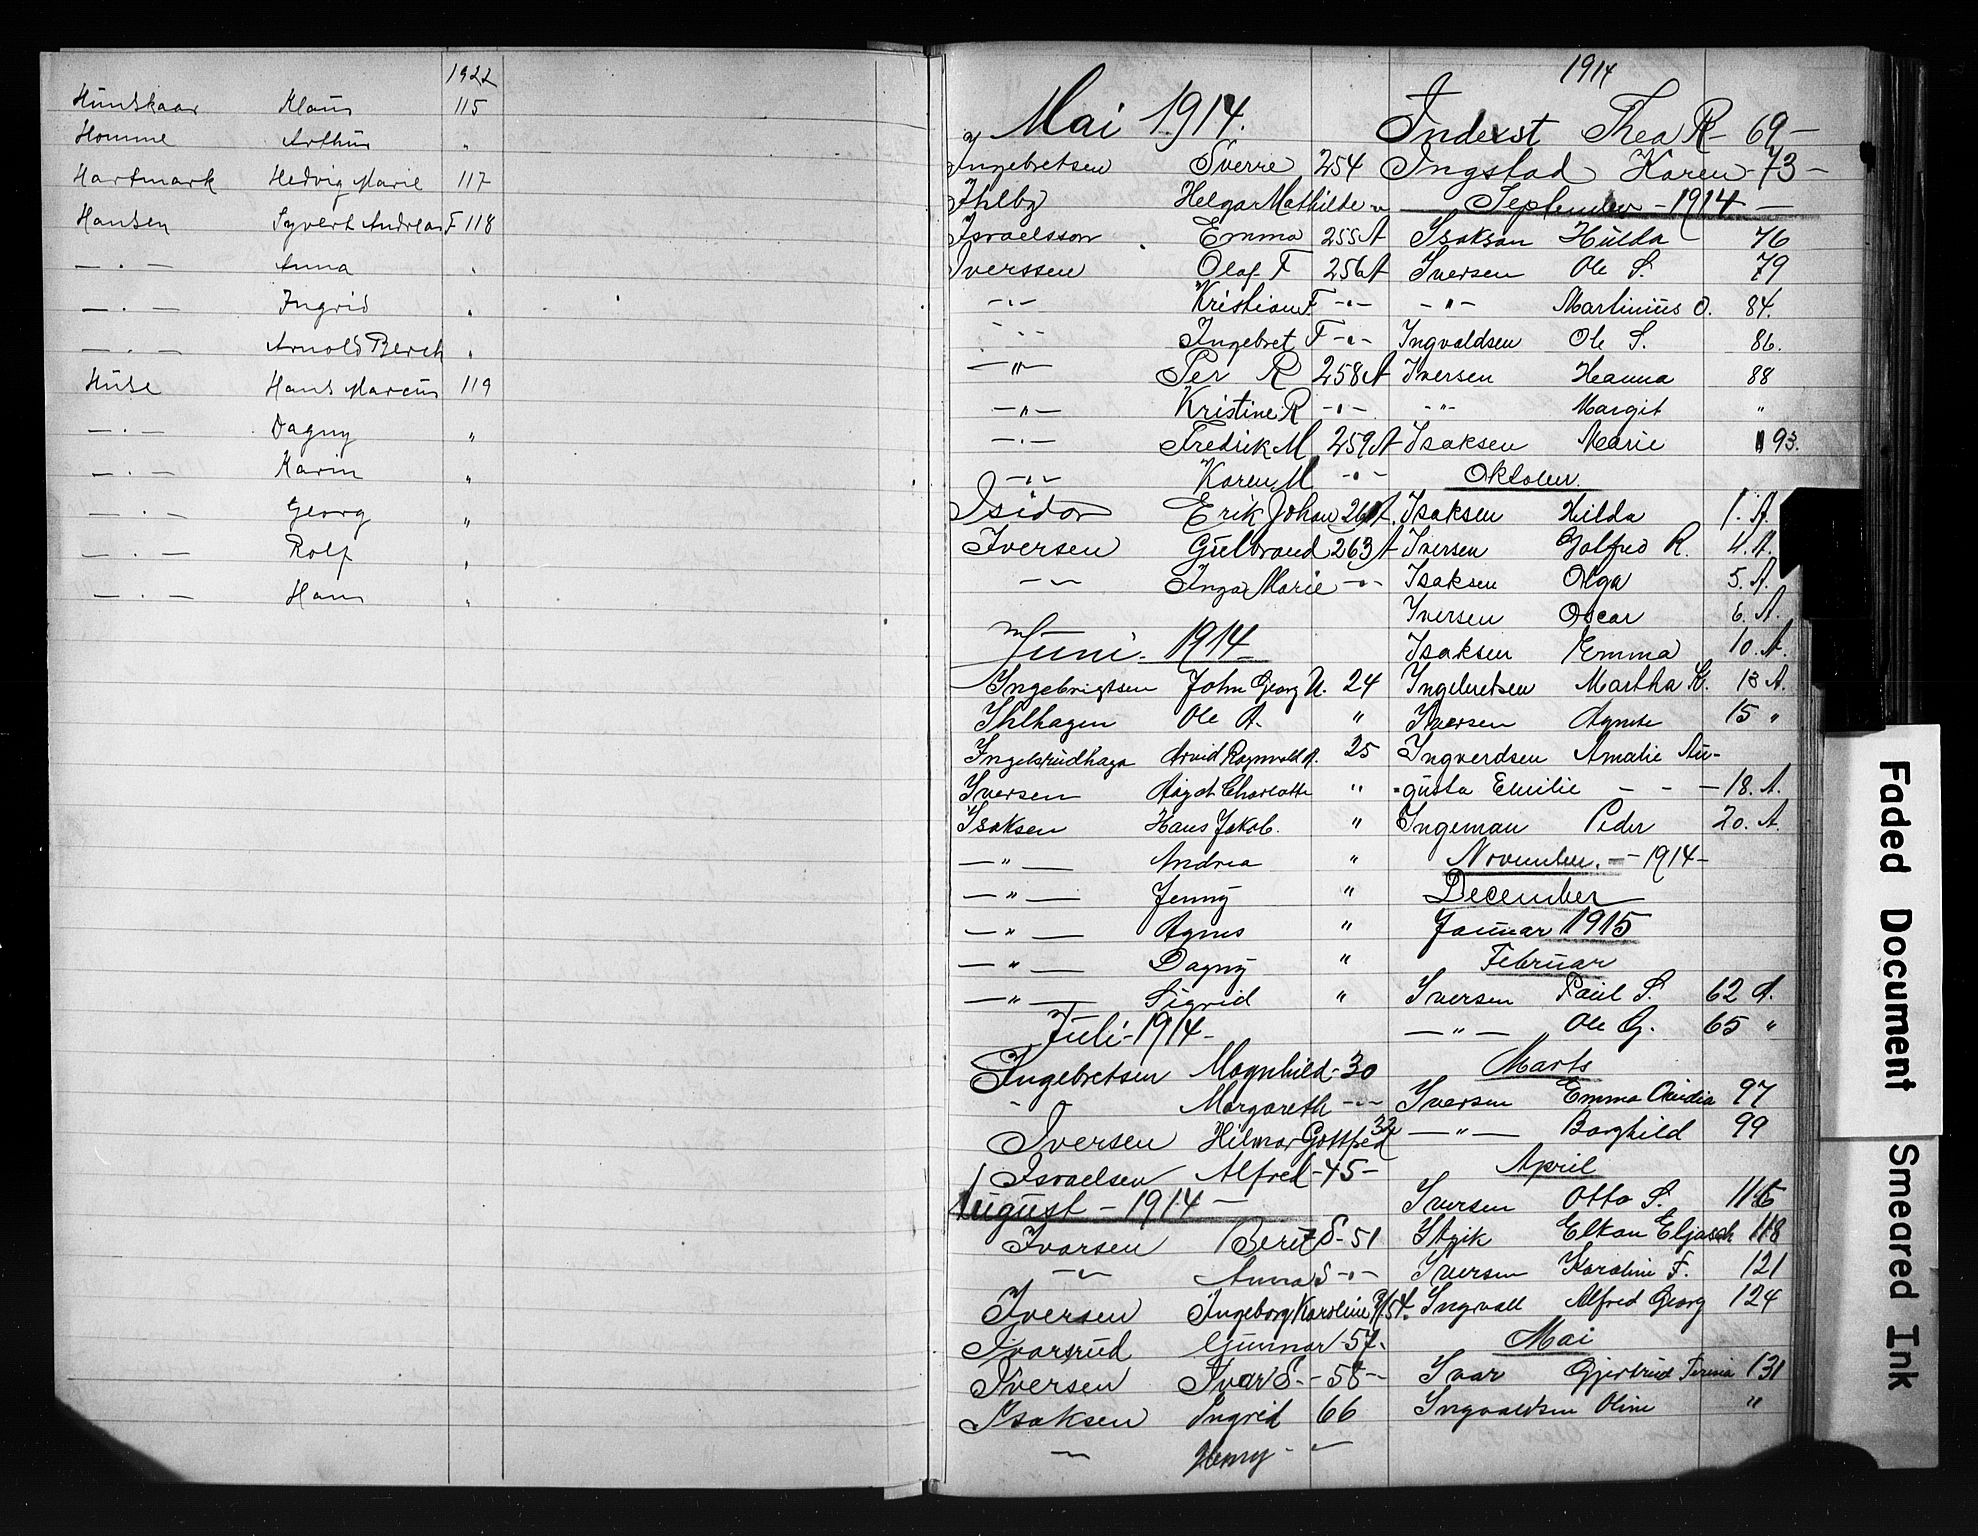 1922
Hundskaar Klaus 115
Homme Arthur "
Hartmark Hedvig Marie 117
Hansen Syvert Andreas F 118
— . — Anna "
— . — Ingrid "
— . — Arnold Berch "
Huse Hans Marcus 119
— . — Dagny "
— . — Karin "
— . — Georg "
— . — Rolf "
— . — Hans "
Mai 1914.
Ingebretsen Sverre 254
Ihlby Helga Mathilde "
Israelsson Emma 255 A
Iverssen Olaf F 256 A
— " — Kristian F — " —
— " — Ingebret F — " —
— " — Per R 258 A
— " — Kristine R — " —
— " — Fredrik M 259 A
— " — Karen M — " —
Isidor Erik Johan 261 A.
Iversen Gulbrand 263 A
— " — Inga Marie — " —
Juni 1914
Ingebrigtsen John Georg N. 24
Ihlhagen Ole A. "
Ingelsrudhaga Arvid Ragnvald A. 25
Iversen Aagot Charlotte "
Isaksen Hans Jakob. "
— " — Andrea "
— " — Jenny "
— " — Agnes "
— " — Dagny "
— " — Sigrid "
Juli - 1914 -
Ingebretsen Magnhild - 30
Margareth — " —
Iversen Hilmar Gottfred 32
Israelsen Alfred - 45 -
August - 1914 —
Ivarsen Beret S - 51
— " — Anna S — " —
Iversen Ingeborg Karoline 54.
Ivarsrud Gunnar - 57.
Iversen Ivar S. - 58 -
Isaksen Ingrid 66
— " — Henny — " —
1914
Indexst Thea R - 69 -
Ingstad Karen - 73 -
September - 1914 -
Isaksan Hulda 76
Iversen Ole S. 79
- " - Martinius O. 84.
Ingvaldsen Ole S. 86.
Iversen Hanna 88
- " - Margit "
Isaksen Marie 93.
Oktober.
Isaksen Hilda 1. A.
Iversen Golfred R. 4. A.
Isaksen Olga 5. A.
Iversen Oscar 6. A.
Isaksen Emma 10. A.
Ingebretsen Martha K. 13 A.
Iversen Agnete 15 "
Ingverdsen Amalie Au-
gusta Emilie - - - 18. A.
Ingeman Peder 20. A.
November. - 1914 -
December
Januar 1915
Februar
Iversen Paul S. 62 A.
— " — Ole G. 65 "
Marts
Iversen Emma Ovidia 97
— " — Borghild 99
April
Iversen Otto S. 115
Elkan Eljasch 118
Iversen Karoline F. 121
Ingvall Alfred Georg 124
Mai
Ivar Gjertrud 131
Ingvaldsen Oline "
Faded Document Smeared Ink